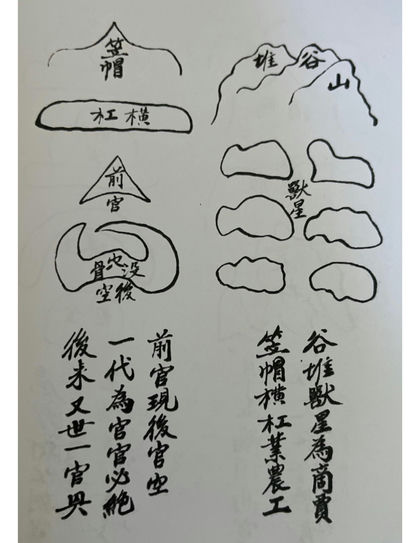 谷堆
山
獸星
谷堆獸星為商賈
笠帽橫杠業農工
笠帽
橫杠
前官
没骨
後空
前官現後官空
一代為官官必絕
後来又世一官興